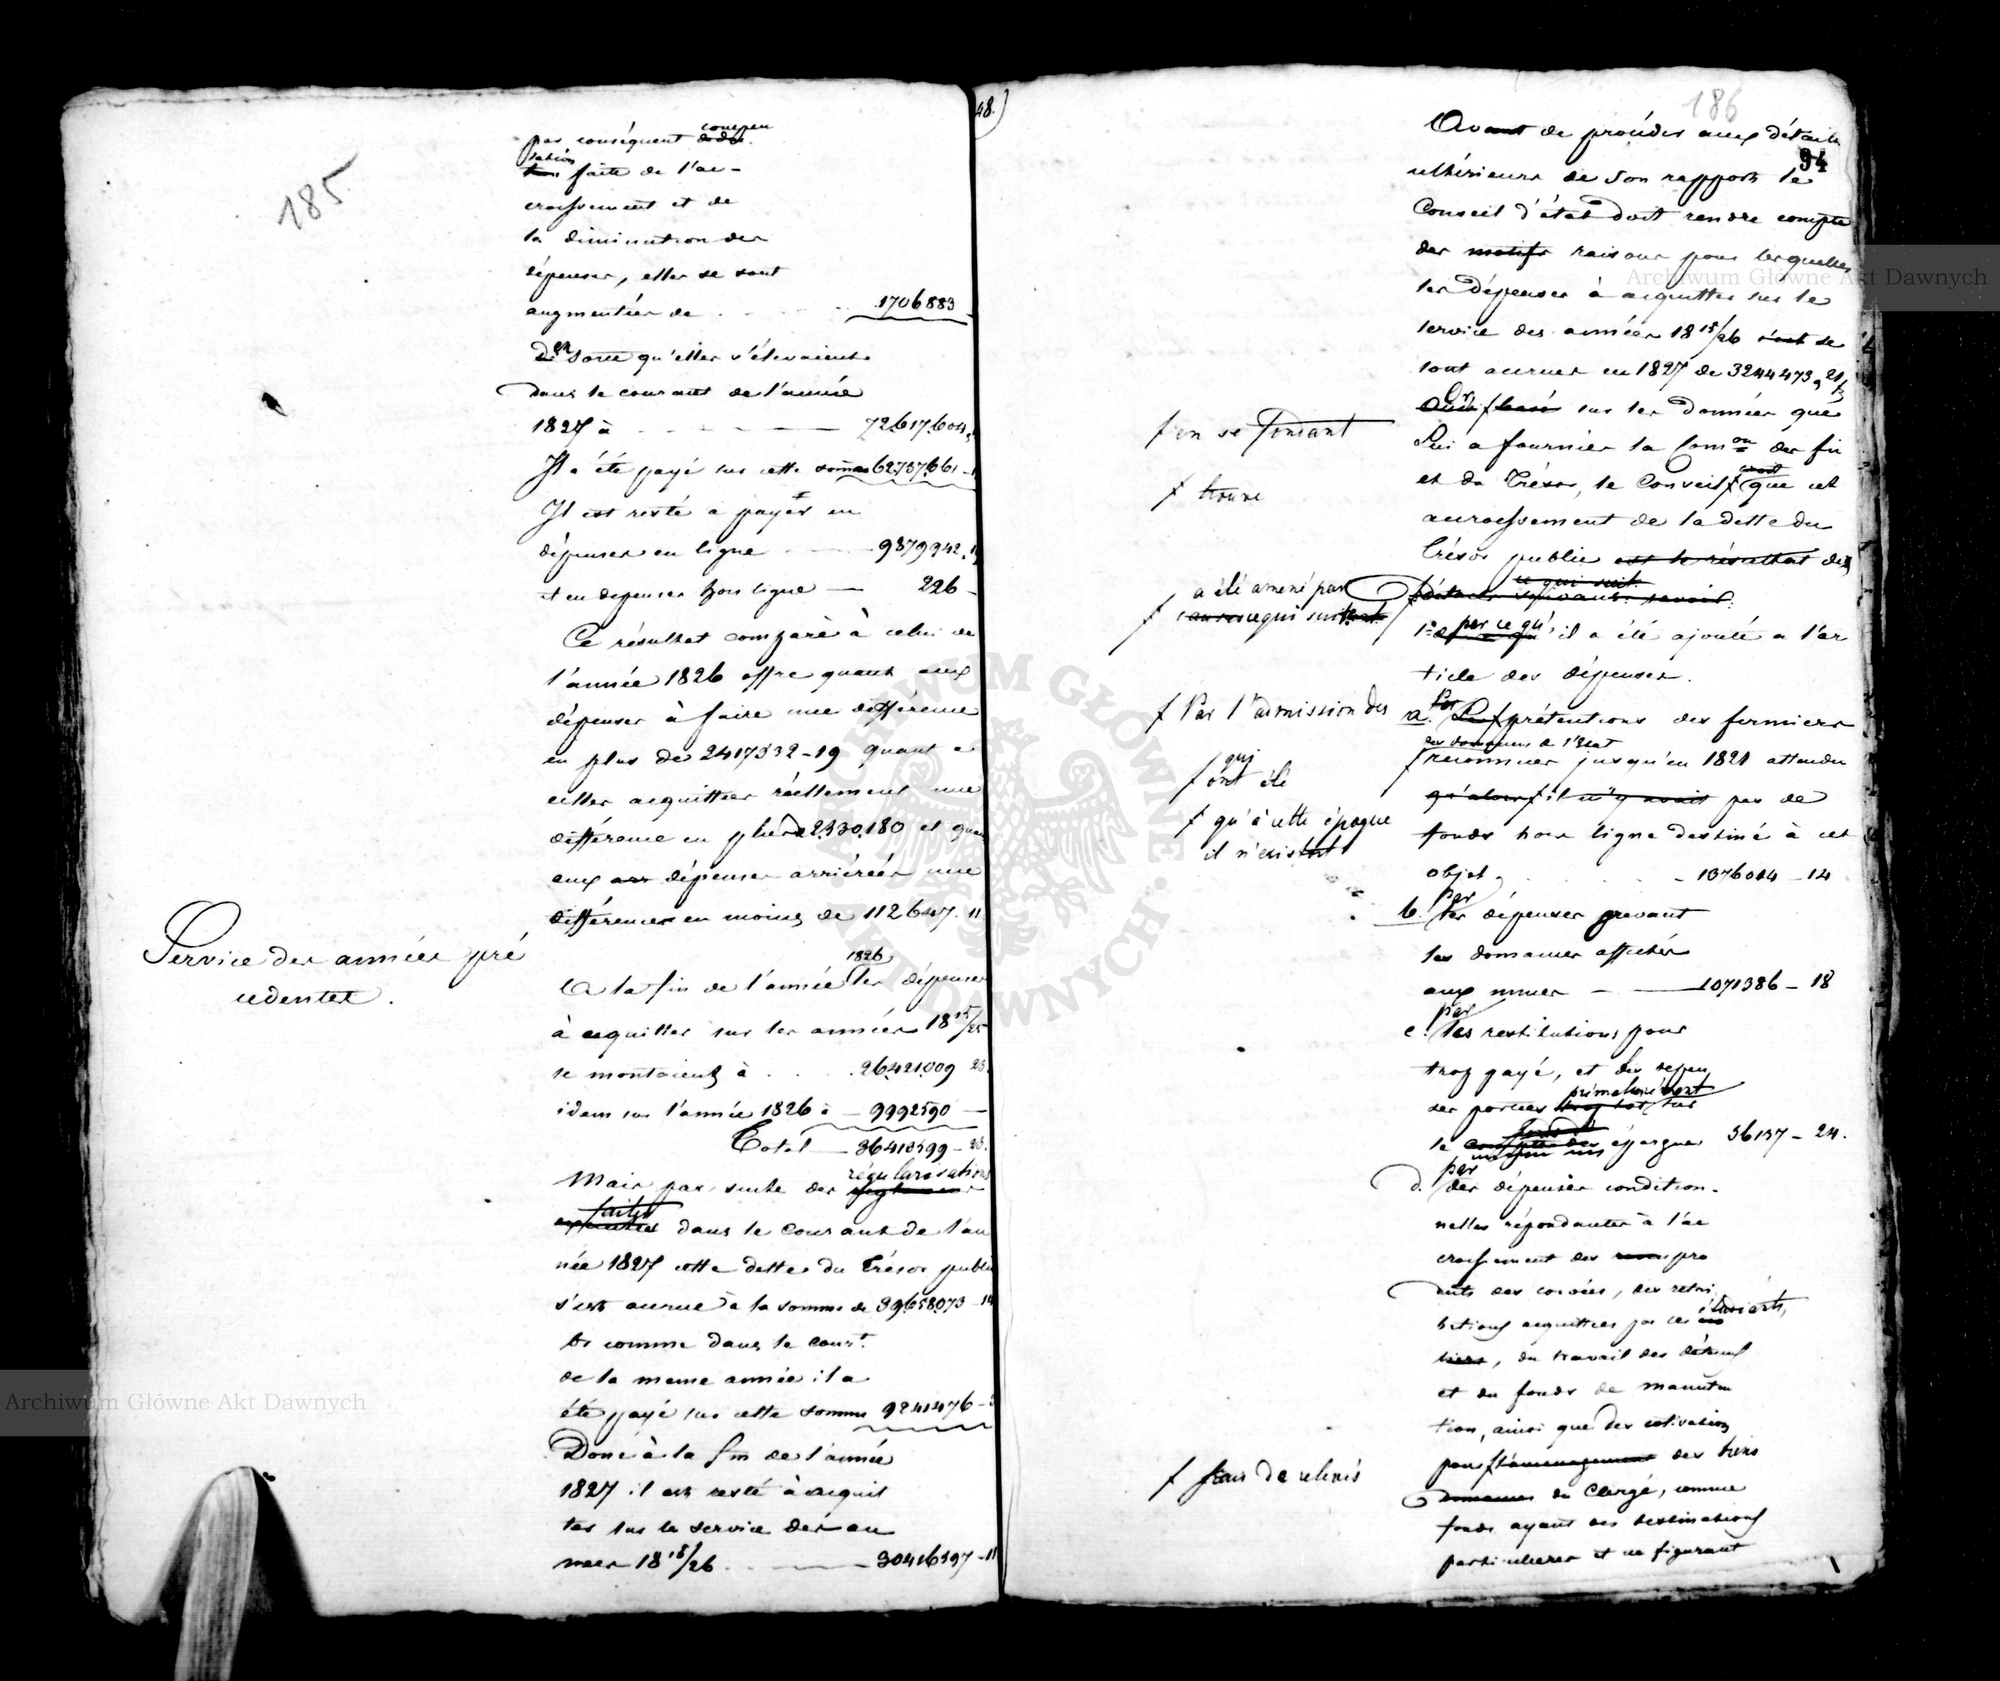 185
par conséquent compen
sation faite de l'ac-
croissement et de
la diminution des
dépenses, elles se sont
augmentées de . . . . 1706883
De sorte qu'elles s'élevaient
dans le courant de l'année
1827 à — — — 72617604
Il a été payé sur cette somme 62737661
Il est resté à payer en
dépenses en ligne — 9879942
et en depenses hors ligne — 226 -
Ce résultat comparé à celui de
l'année 1826 offre quant aux
dépenses à faire une différence
en plus de 2417532-19 quant a
celles acquittées réellement une
différence en plus de 2530,180 et quant
aux dépenses arriérées une
différence en moins de 112647. 11
Service des années pré
cedentes.
A la fin de l'année 1826 les dépenses
à acquitter sur les années 18 15/25
se montaient à . . . 26421,009 23.
idem sur l'année 1826 à — 9992590 —
Total — 36413599 - 23.
Mais par suite des régularisations
faites dans le courant de l'an
née 1827 cette dette du Trésor public
s'est accrue à la somme de 39,658,073 - 14
Et comme dans le cour.t
de la meme année il a
été payé sur cette somme 9241476 -
Donc à la fin de l'année
1827 il est resté à acquit
ter sur le service des an
nées 18 15/26 . — 30416597 - 11
48.)
186
94
Avant de procéder aux détails
ulterieurs de son rapport le
Conseil d'état doit rendre compte
des motifs raisons pour lesquelles
les Dépenses à acquitter sur le
service des années 18 15/26 se
sont accrues en 1827 de 3244473, 21
f en se fondant
Or, f basé sur les Données que
lui a fournies la Com.on des fin
f trouve
et du Trésor, le Conseil f que cet
accroissement de la dette du
Trésor public est le résultat des
a été amené par
ce qui suit.
détails suivants: savoir:
1° par ce qu'il a été ajouté a l'ar
ticle des dépenses.
f Par l'admission des
a. Les f prétentions des fermiers
des domaines de l'Etat
f qui
ont été
f reconnues jusqu'en 1821 attendu
f qu'à cette époque
il n'existait
qu'alors f il n'y avait pas de
fonds hors ligne destiné à cet
objet, . . . . - 1076014 - 14
b. Par les dépenses grevant
les domaines affectés
aux mines — — 1071386 - 18
c. par les restitutions pour
trop payé, et des depen
ses portées prématurément sur
le épargnes 36137 - 24.
d. par des dépenses condition-
nelles répondantes à l'ac
croissement des pro
duits des corvées, des retri
butions acquittées par les
, du travail des détenus
et du fonds de manuten
tion, ainsi que des cotisations
f frais de
pour f l'aménagement des biens
domaines du Clergé, comme
fonds ayant des destinations
particulieres et ne figurant
Archiwum Główne Akt Dawnych
Archiwum Główne Akt Dawnych
ARCHIWUM GŁÓWNE AKT DAWNYCH